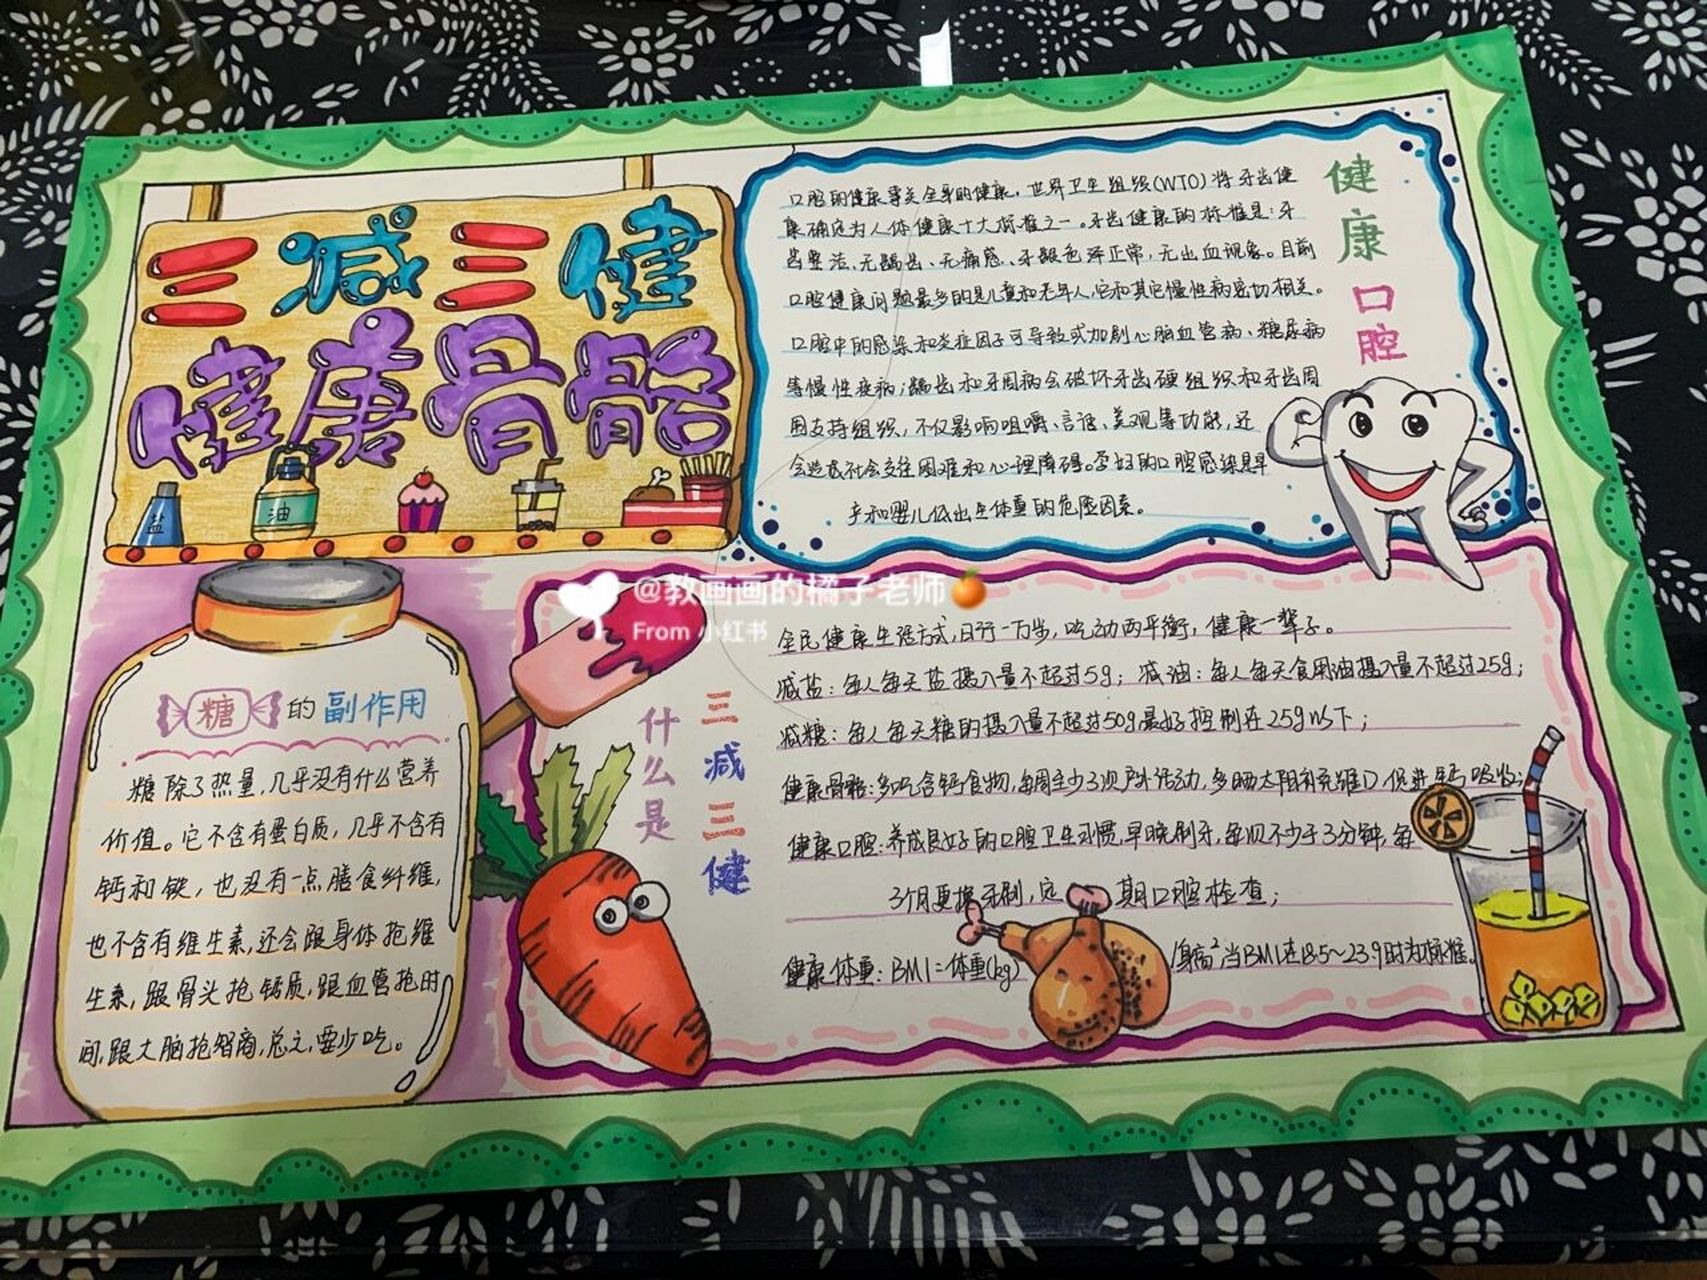 三减三健
健康骨骼
盐
油
健康口腔
口腔的健康事关全身的健康。世界卫生组织(WTO)将牙齿健
康确定为人体健康十大标准之一。牙齿健康的标准是:牙
齿整洁、无龋齿、无痛感、牙龈色泽正常,无出血现象。目前
口腔健康问题最多的是儿童和老年人,它和其它慢性病密切相关。
口腔中的感染和炎症因子可导致或加剧心脑血管病、糖尿病
等慢性疾病;龋齿和牙周病会破坏牙齿硬组织和牙齿周
围支持组织,不仅影响咀嚼、言语、美观等功能,还
会造成社会交往困难和心理障碍。孕妇的口腔感染是早
产和婴儿低出生体重的危险因素。
@教画画的橘子老师🍊
From 小红书
糖的副作用
糖除了热量,几乎没有什么营养
价值。它不含有蛋白质,几乎不含有
钙和铁,也没有一点膳食纤维,
也不含有维生素,还会跟身体抢维
生素,跟骨头抢钙质,跟血管抢时
间,跟大脑抢智商,总之,要少吃。
什么是
三减三健
全民健康生活方式,日行一万步,吃动两平衡,健康一辈子。
减盐:每人每天盐摄入量不超过5g;减油:每人每天食用油摄入量不超过25g;
减糖:每人每天糖的摄入量不超过50g最好控制在25g以下;
健康骨骼:多吃含钙食物,每周至少3次户外活动,多晒太阳补充维D,促进钙吸收;
健康口腔:养成良好的口腔卫生习惯,早晚刷牙,每次不少于3分钟,每
3个月更换牙刷,定期口腔检查;
健康体重:BMI=体重(kg)/身高²,当BMI在18.5~23.9时为标准。